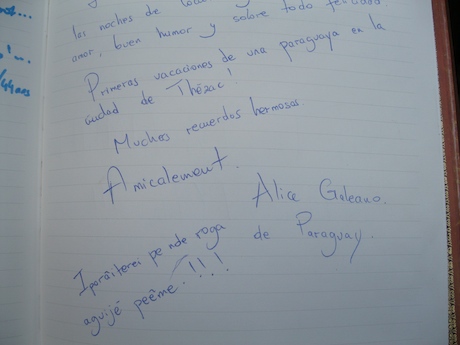 las noches de
amor, buen humor y sobre todo felicidad
Primeras vacaciones de una paraguaya en la
ciudad de Thézac!
Muchos recuerdos hermosos.
Amicalement.
Alice Galeano.
de Paraguay.
Iporãiterei pe nde roga
aguijé peême!!!